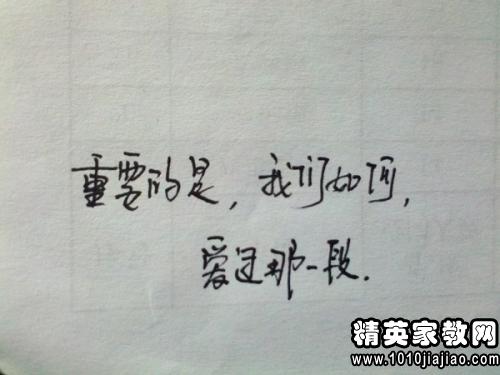 重要的是，我们如何，
爱过那一段.
精英家教网
www.1010jiajiao.com